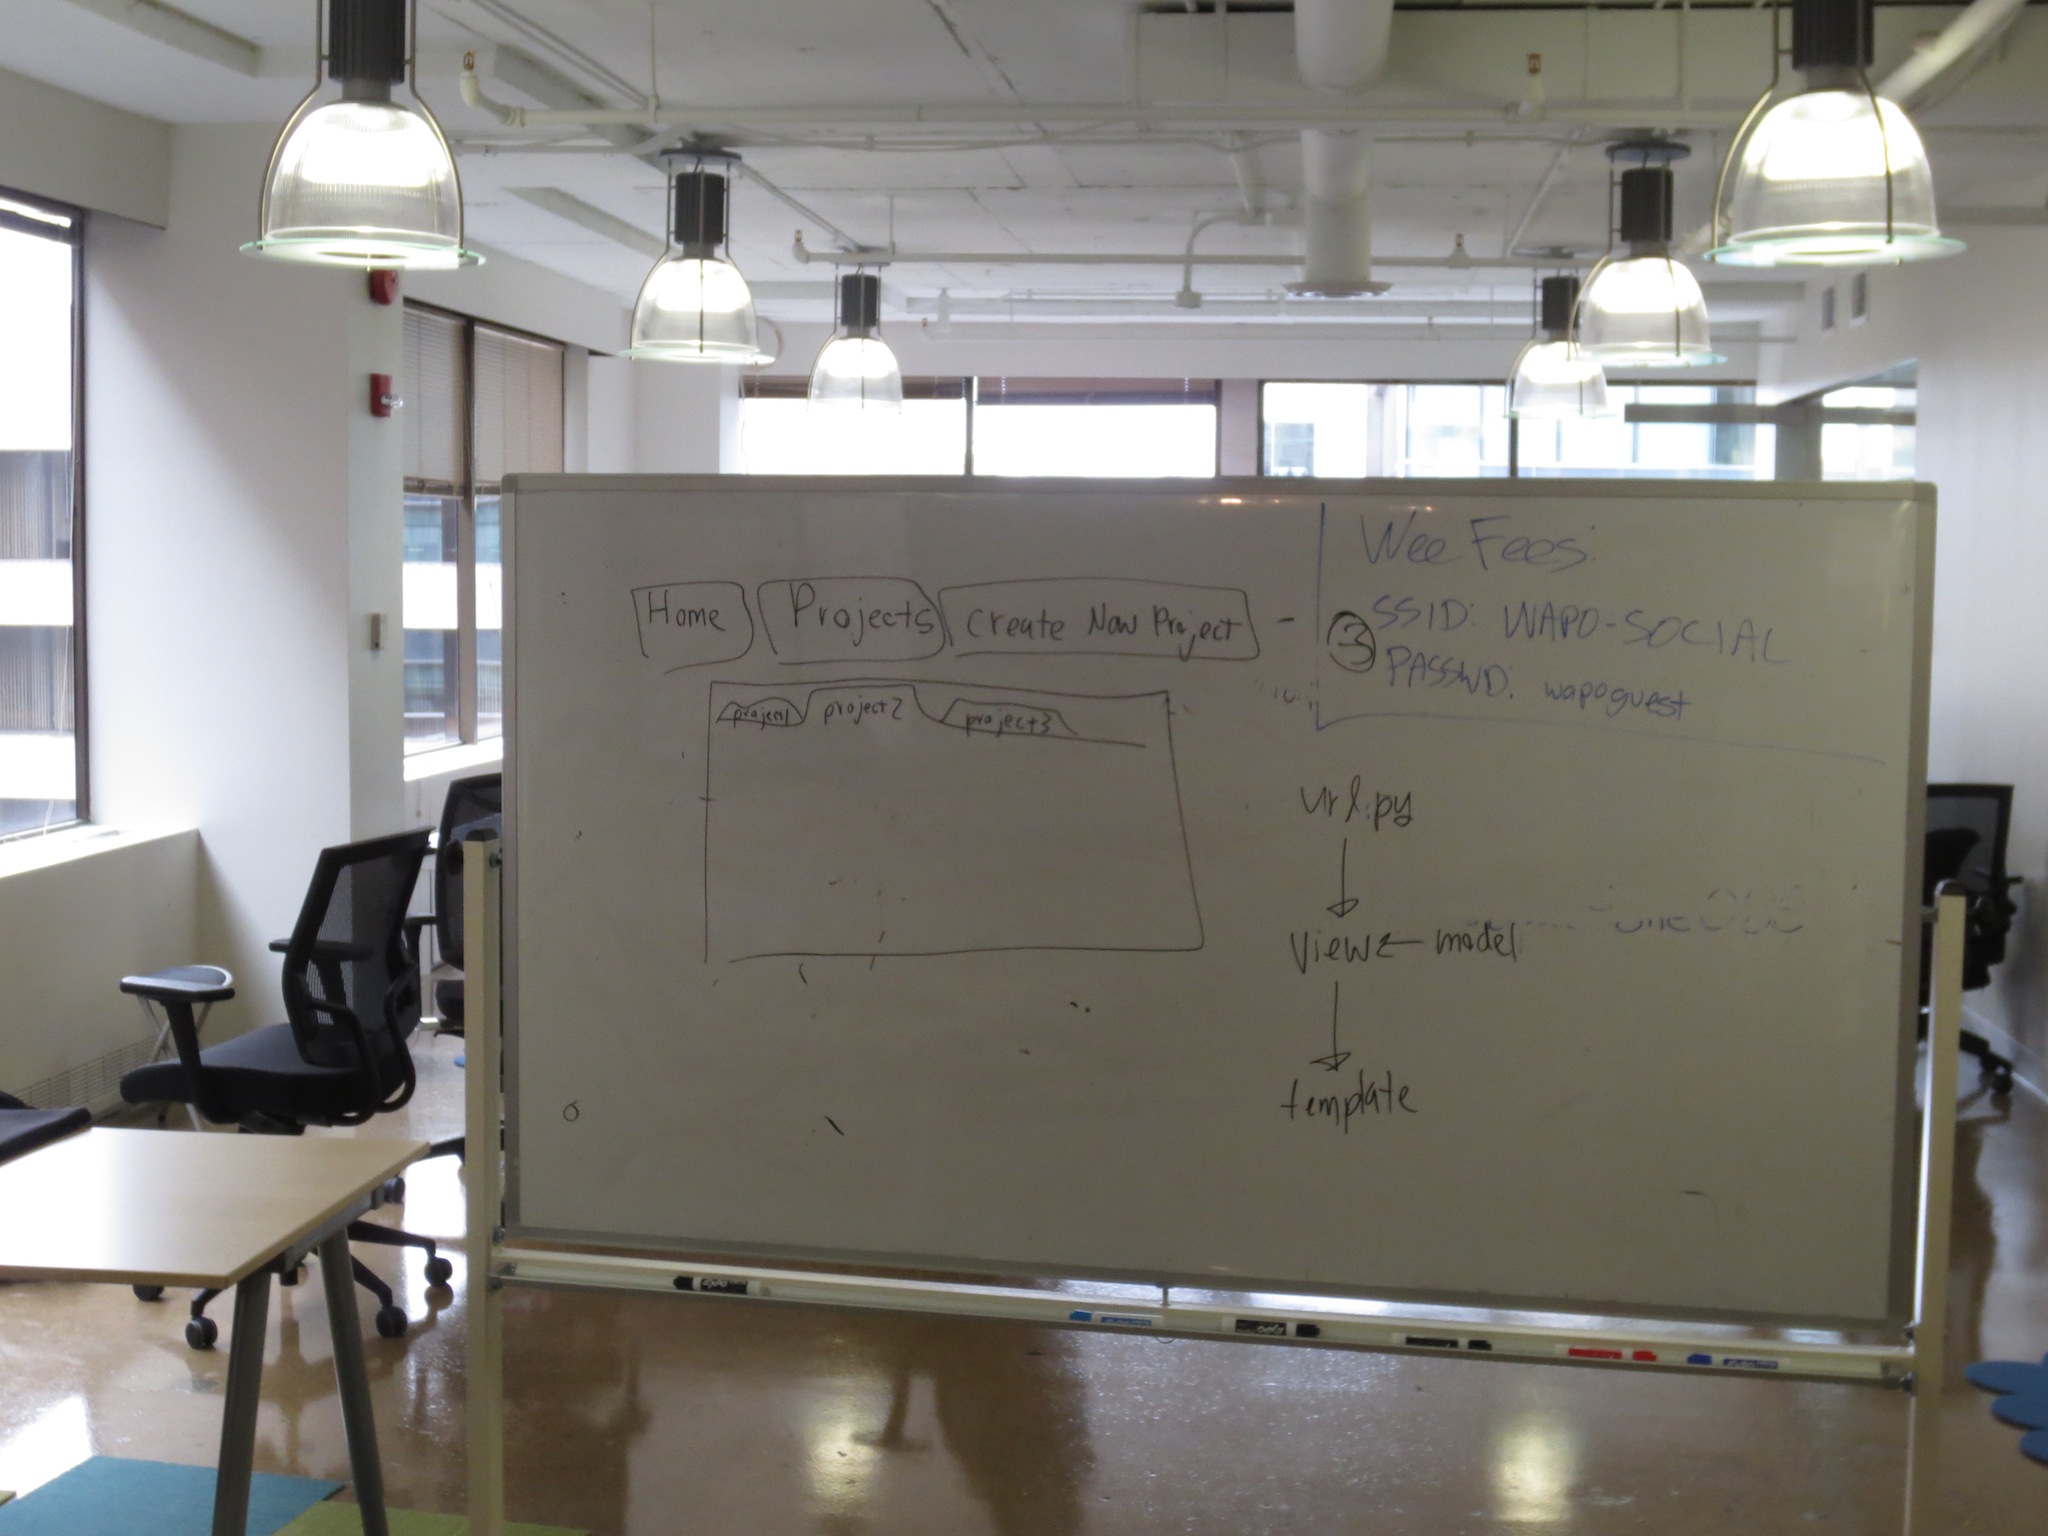 Home Projects Create New Project
project1 project2 project3
Wee Fees:
③ SSID: WAPO-SOCIAL
PASSWD: wapoguest
url.py
view ← model
template